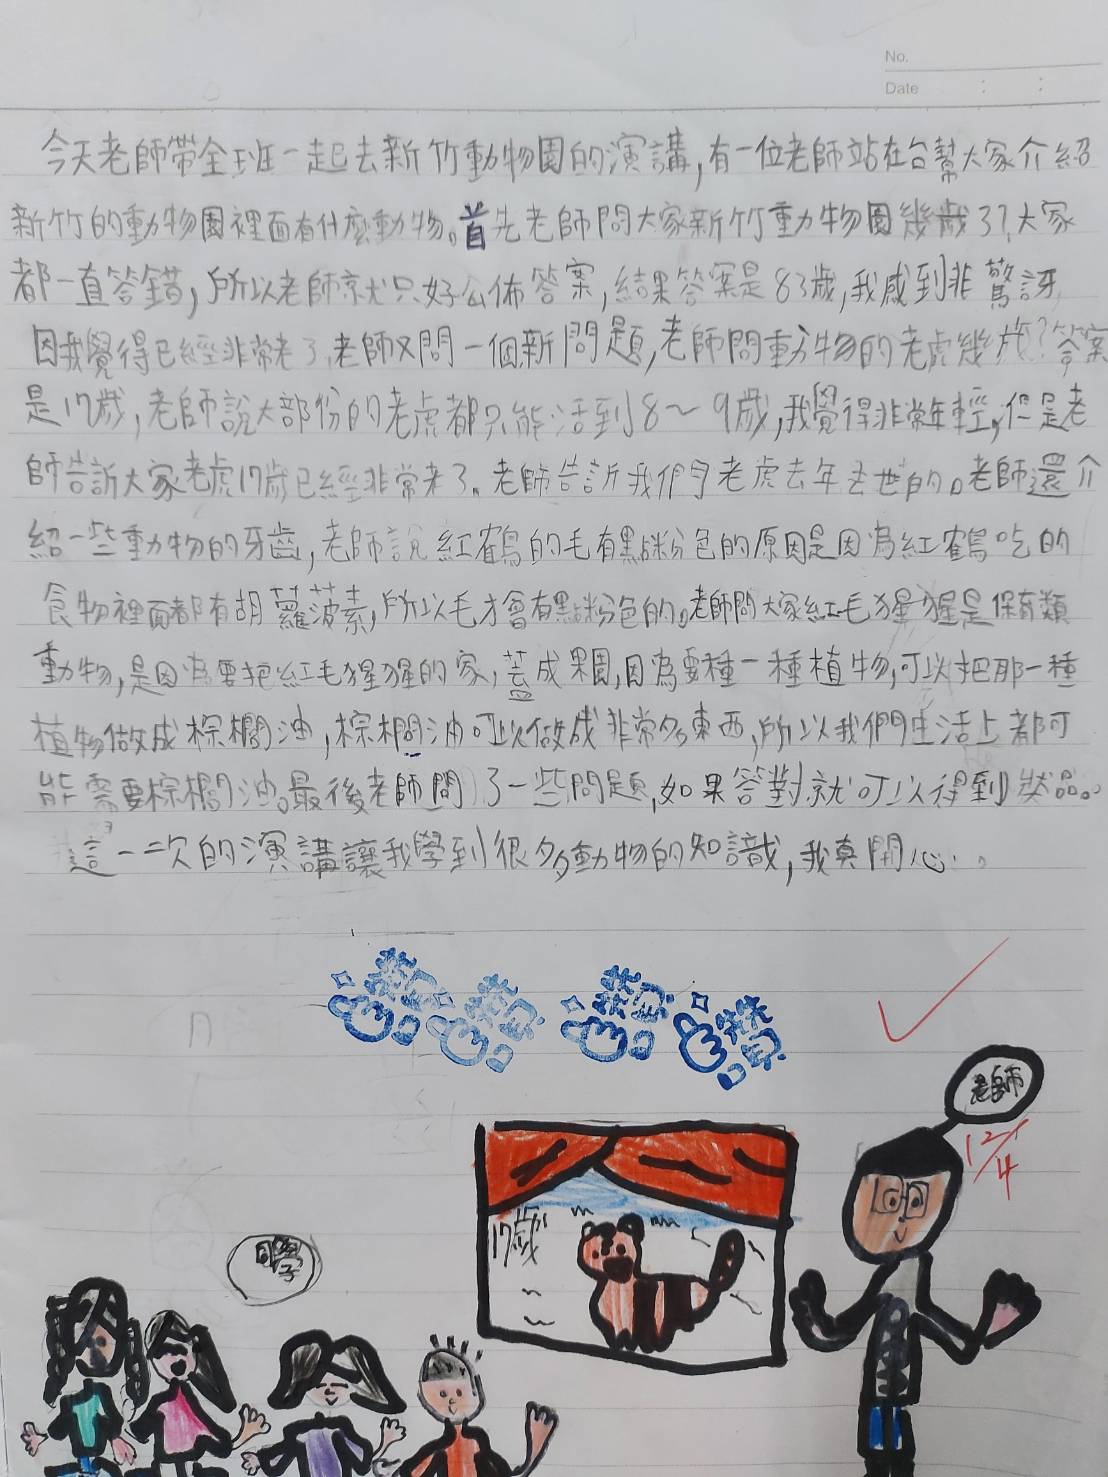 No.
Date : :
今天老師帶全班一起去新竹動物園的演講,有一位老師站在台幫大家介紹
新竹的動物園裡面有什麼動物。首先老師問大家新竹動物園幾歲了?大家
都一直答錯,所以老師就只好公佈答案,結果答案是83歲,我感到非驚訝
因我覺得已經非常老了,老師又問一個新問題,老師問動物的老虎幾歲?答案
是17歲,老師說大部份的老虎都只能活到8~9歲,我覺得非常年輕,但是老
師告訴大家老虎17歲已經非常老了。老師告訴我們老虎去年去世的。老師還介
紹一些動物的牙齒,老師說紅鶴的毛有點粉色的原因是因為紅鶴吃的
食物裡面都有胡蘿菠素,所以毛才會有點粉色的。老師問大家紅毛猩猩是保育類
動物,是因為要把紅毛猩猩的家,蓋成果園,因為要種一種植物,可以把那一種
植物做成棕櫚油,棕櫚油可以做成非常多東西,所以我們生活上都可
能需要棕櫚油。最後老師問了一些問題,如果答對就可以得到獎品。
這一次的演講讓我學到很多動物的知識,我真開心。
讚 讚 讚 讚
老師
12/4
17歲
同學